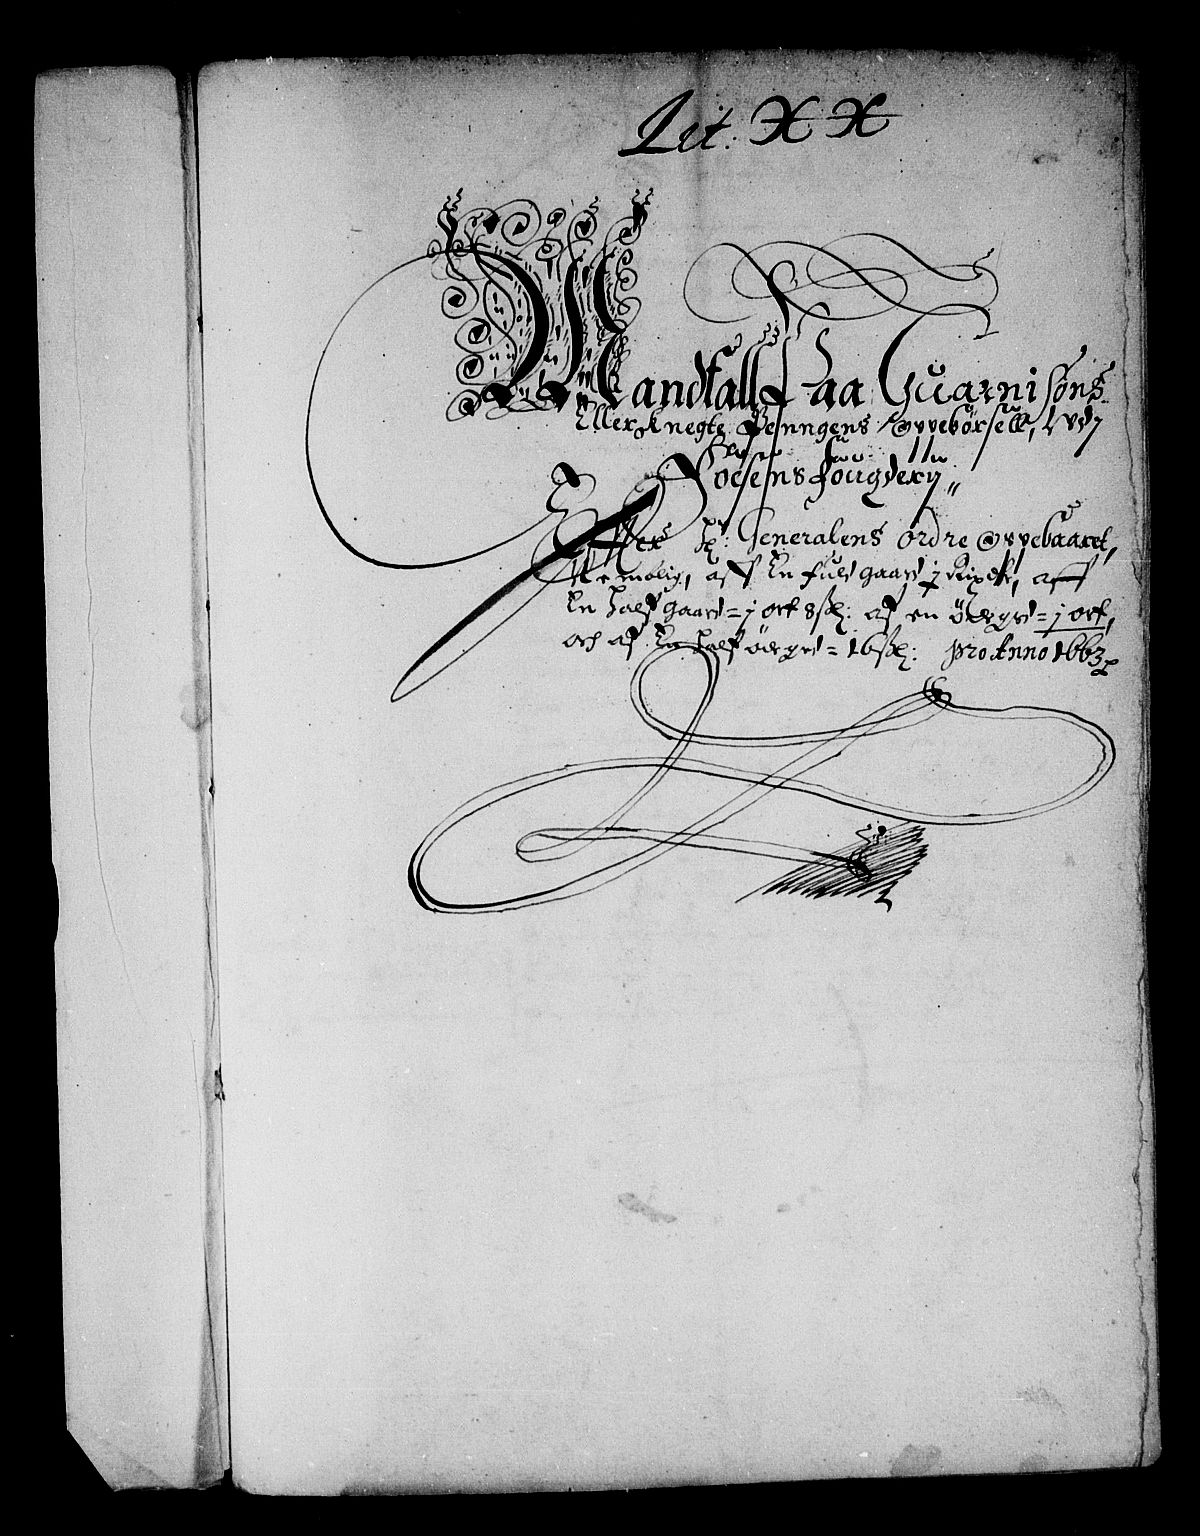 Lit. XX
Mandtall Paa Guarnisons
Eller Knegte Penngens Oppebørsell, Udj
Foesens fougderij„
Effter H: Generalens ordre Oppebaaret,
Nemblig, aff En fuld gaard j Rixdr, aff
En Half gaard = j ort 8 sk: af en ödegrd = j ort,
och af En Half ödegrd = 16 sk: pro Anno 1663